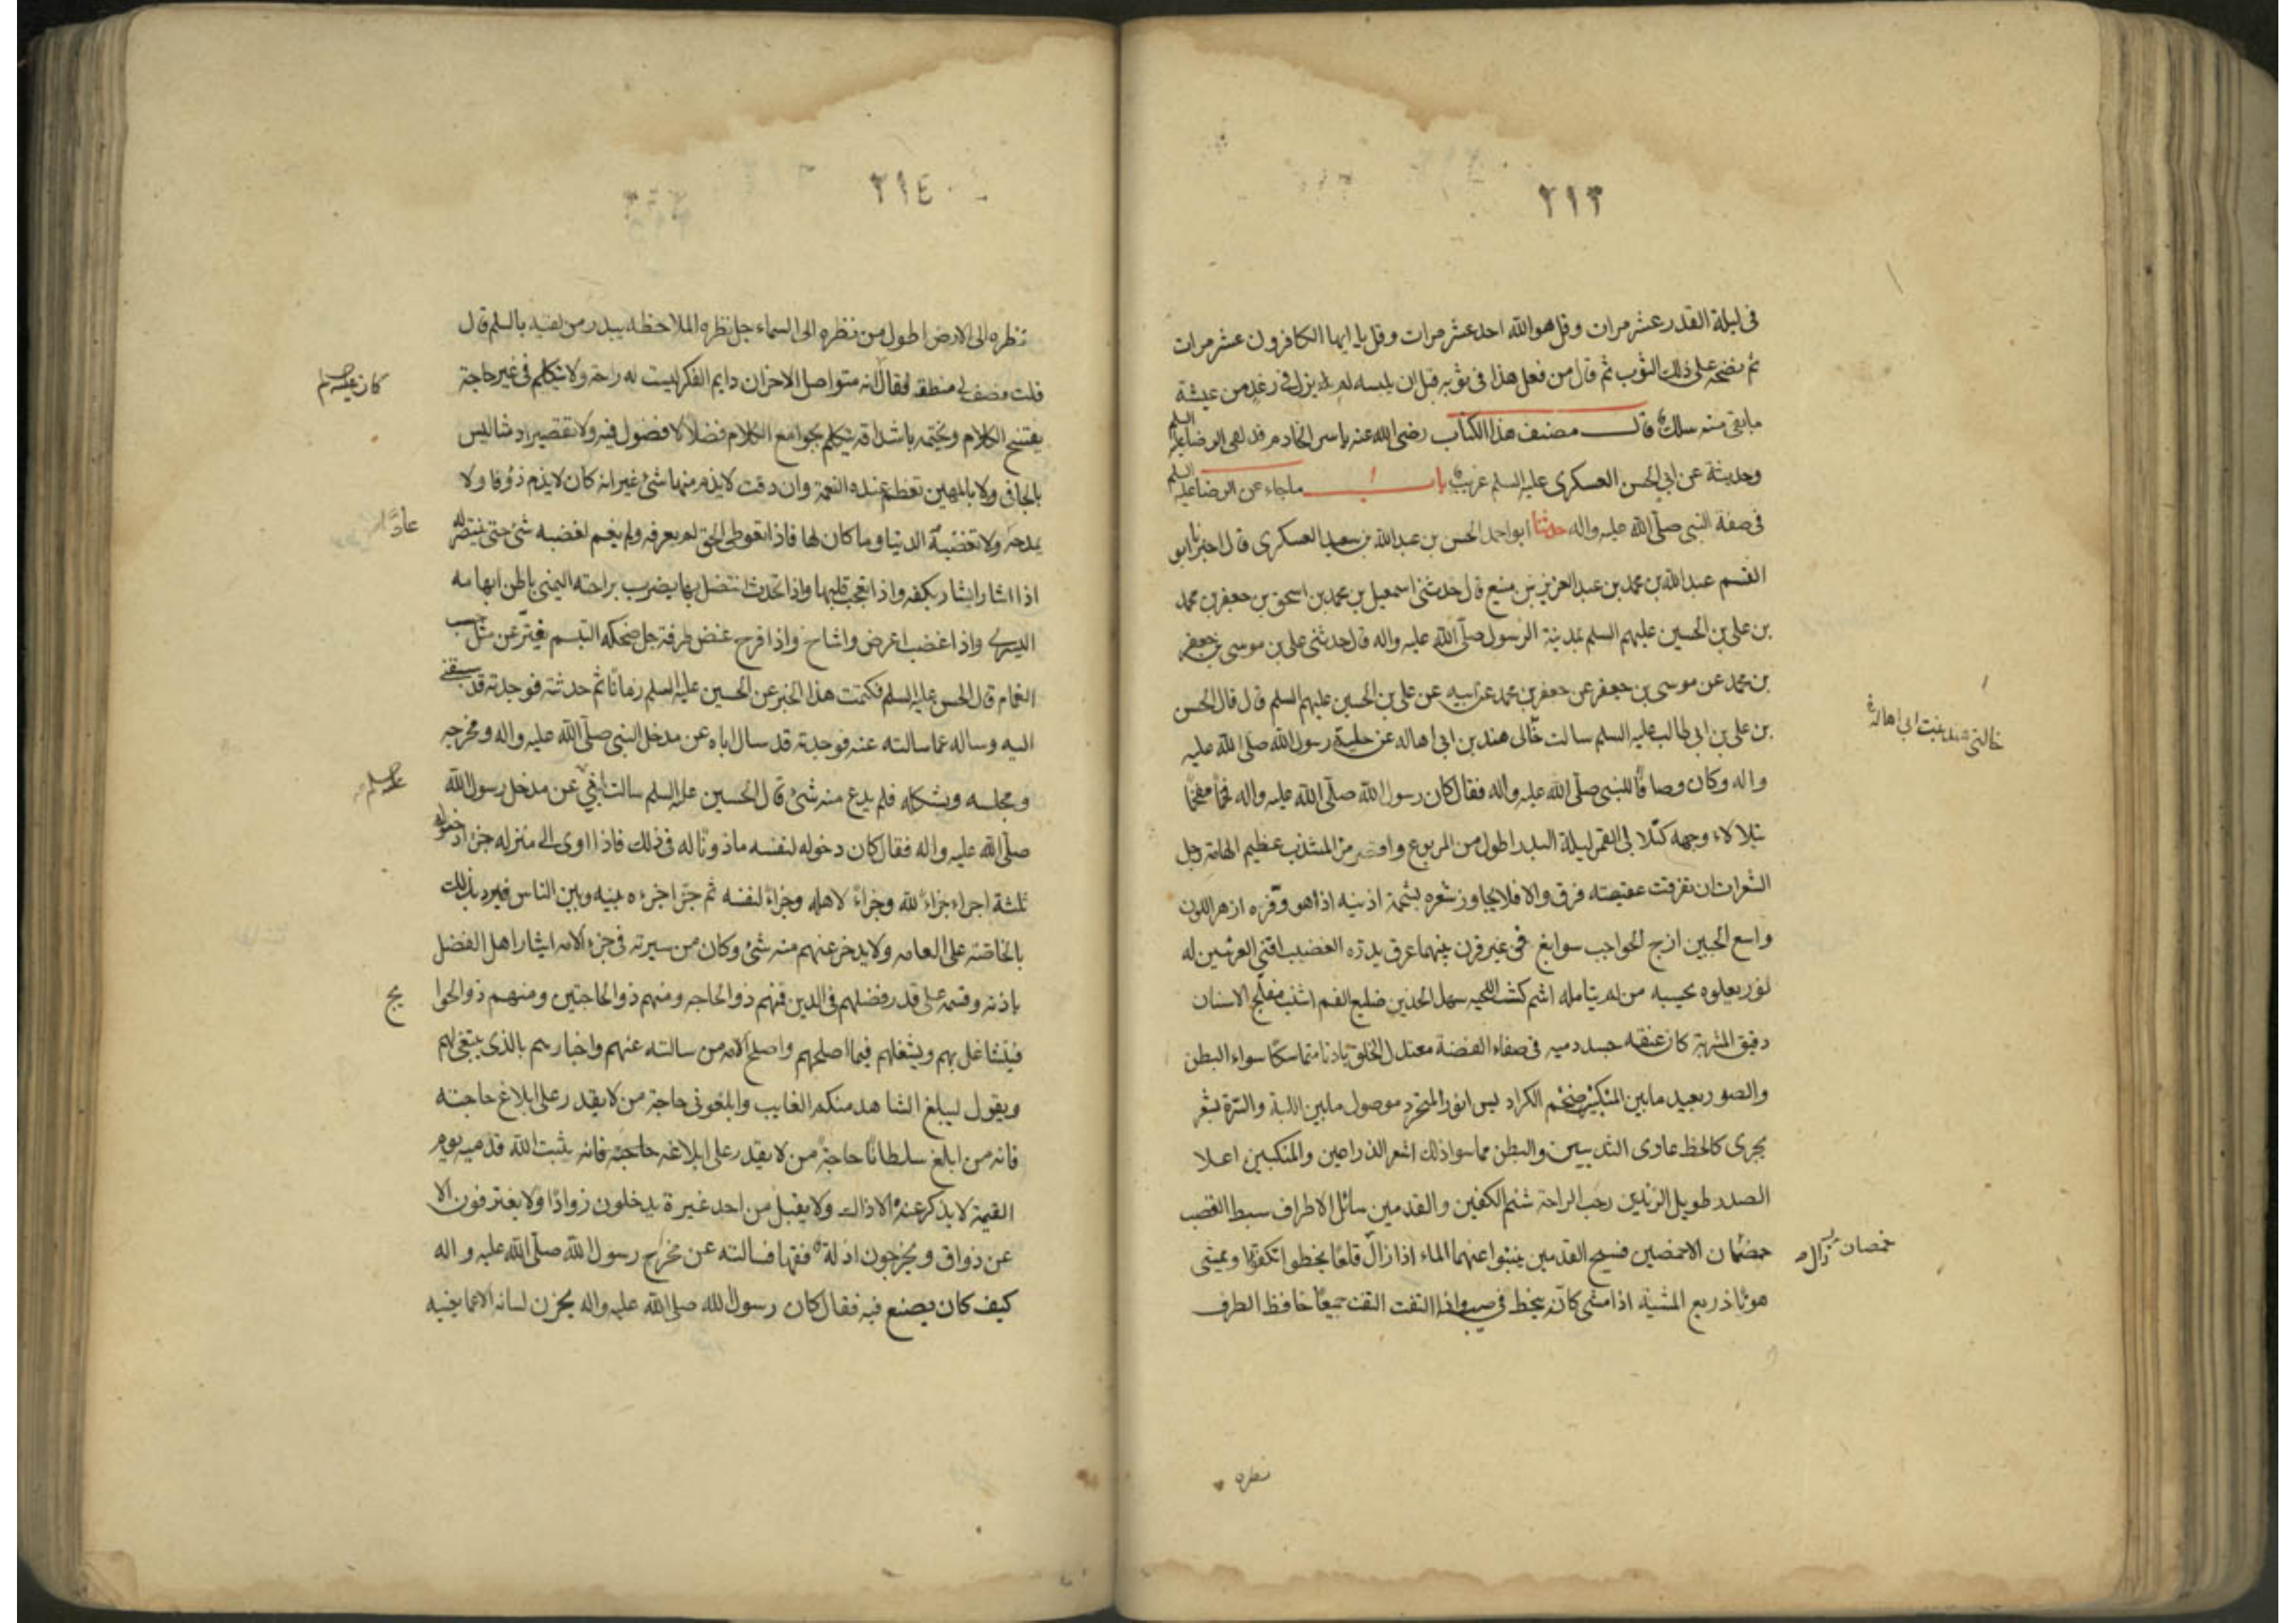 ٢١٣
فى ليلة القدر عشر مرات وقل هو الله احد عشر مرات وقل يا ايها الكافرون عشر مرات
ثم نضحه على ذلك الثوب ثم قال من فعل هذا فى ثوبه قبل ان يلبسه لم يزل فى رغد من عيشة
مابقى منه سلك قال مصنف هذا الكتاب رضى الله عنه ياسر الخادم قد لقى الرضا عليه السلم
وحديثة عن ابى الحسن العسكرى عليه السلم غريب باب ماجاء عن الرضا عليه السلم
فى صفة النبى صلى الله عليه واله حدثنا ابو احمد الحسن بن عبد الله بن سعيد العسكرى قال اخبرنا ابو
القسم عبد الله بن محمد بن عبد العزيز بن منيع قال حدثنى اسمعيل بن محمد بن اسحق بن جعفر بن محمد
بن على بن الحسين عليهم السلم بمدينة الرسول صلى الله عليه واله قال حدثنى على بن موسى بن جعفر
بن محمد عن موسى بن جعفر عن جعفر بن محمد عن ابيه عن على بن الحسين عليهم السلم قال قال الحسن
بن على بن ابى طالب عليه السلم سالت خالى هند بن ابى اهاله عن حلية رسول الله صلى الله عليه
خالتى هند بنت ابى اهالة
واله وكان وصافا للنبى صلى الله عليه واله فقال كان رسول الله صلى الله عليه واله فخما مفخما
يتلالاء وجهه كتلالى القمر ليلة البدر اطول من المربوع واقصر من المشذب عظيم الهامة رجل
الشعر ان تفرقت عقيصته فرق والا فلا يجاوز شعره شحمة اذنيه اذا هو وفره ازهر اللون
واسع الجبين ازج الحواجب سوابغ فى غير قرن بينهما عرق يدره الغضب اقنى العرنين له
نور يعلوه يحسبه من لم يتامله اشم كث اللحيه سهل الخدين ضليع الفم اشنب مفلج الاسنان
دقيق المشربة كان عنقه جيد دميه فى صفاء الفضة معتدل الخلق بادنا متماسكا سواء البطن
والصدر بعيد مابين المنكبين ضخم الكراديس انور المتجرد موصول مابين اللبة والسرة بشعر
يجرى كالخط عارى الثديين والبطن مما سوا ذلك اشعر الذراعين والمنكبين اعلا
الصدر طويل الزندين رحب الراحة شثن الكفين والقدمين سائل الاطراف سبط القصب
خمصان الاخمصين فسيح القدمين ينبوا عنهما الماء اذا زال قلعا يخطوا تكفوا ويمشى
خمصان زال
هونا ذريع المشية اذا مشى كانه ينحط فى صبب واذا التفت التفت جميعا خافظ الطرف
نظره
٢١٤
نظره الى الارض اطول من نظره الى السماء جل نظره الملاحظه يبدر من لقيه بالسلم قال
قلت فصف لى منطقه فقال انه متواصل الاحزان دايم الفكر ليست له راحة ولا يتكلم فى غير حاجة
يفتتح الكلام ويختمه باشداقه يتكلم بجوامع الكلام فضلا لا فضول فيه ولا تقصير دمثا ليس
بالجافى ولا بالمهين تعظم عنده النعمة وان دقت لا يذم منها شئ غير انه كان لا يذم ذوقا ولا
يمدحه ولا تغضبه الدنيا وما كان لها فاذا تعوطى الحق لم يعرفه ولم يقم لغضبه شئ حتى ينتصر له
اذا اشار اشار بكفه واذا تعجب قلبها واذا تحدث اتصل بها يضرب براحته اليمنى باطن ابهامه
اليسرى واذا غضب اعرض واشاح واذا فرح غض طرفه جل ضحكه التبسم يفتر عن مثل حب
الغمام قال الحسن عليه السلم فكتمت هذا الخبر عن الحسين عليه السلم زمانا ثم حدثته فوجدته قد سبقنى
اليه وساله عما سالته عنه فوجدته قد سال اباه عن مدخل النبى صلى الله عليه واله ومخرجه
ومجلسه وشكله فلم يدع منه شئ قال الحسين عليه السلم سالت ابى عن مدخل رسول الله
صلى الله عليه واله فقال كان دخوله لنفسه ماذونا له فى ذلك فاذا اوى الى منزله جزا دخوله
ثلثة اجزاء جزاء لله وجزاء لاهله وجزاء لنفسه ثم جزا جزءه بينه وبين الناس فيرد ذلك
بالخاصة على العامه ولا يدخر عنهم منه شئ وكان من سيرته فى جزء الامه ايثار اهل الفضل
باذنه وقسمه على قدر فضلهم فى الدين فمنهم ذو الحاجه ومنهم ذو الحاجتين ومنهم ذو الحوا
يج
فيتشاغل بهم ويشغلهم فيما اصلحهم واصلح الامه من سالته عنهم واخبارهم بالذى ينبغى لهم
ويقول ليبلغ الشاهد منكم الغايب وابلغونى حاجة من لا يقدر على ابلاغ حاجته
فانه من ابلغ سلطانا حاجة من لا يقدر على ابلاغه حاجته فانه يثبت الله قدميه يوم
القيمة لا يذكر عنده الا ذلك ولا يقبل من احد غيرة يدخلون روادا ولا يفترفون الا
عن ذواق ويخرجون ادلة فقها فسالته عن مخرج رسول الله صلى الله عليه واله
كيف كان يصنع فيه فقال كان رسول الله صلى الله عليه واله يخزن لسانه الا عما يعنيه